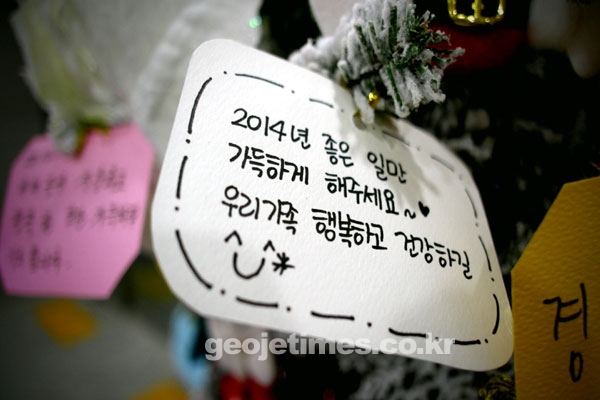 2014년 좋은 일만
가득하게 해주세요~♥
우리가족 행복하고 건강하길
^U^*
경
geojetimes.co.kr